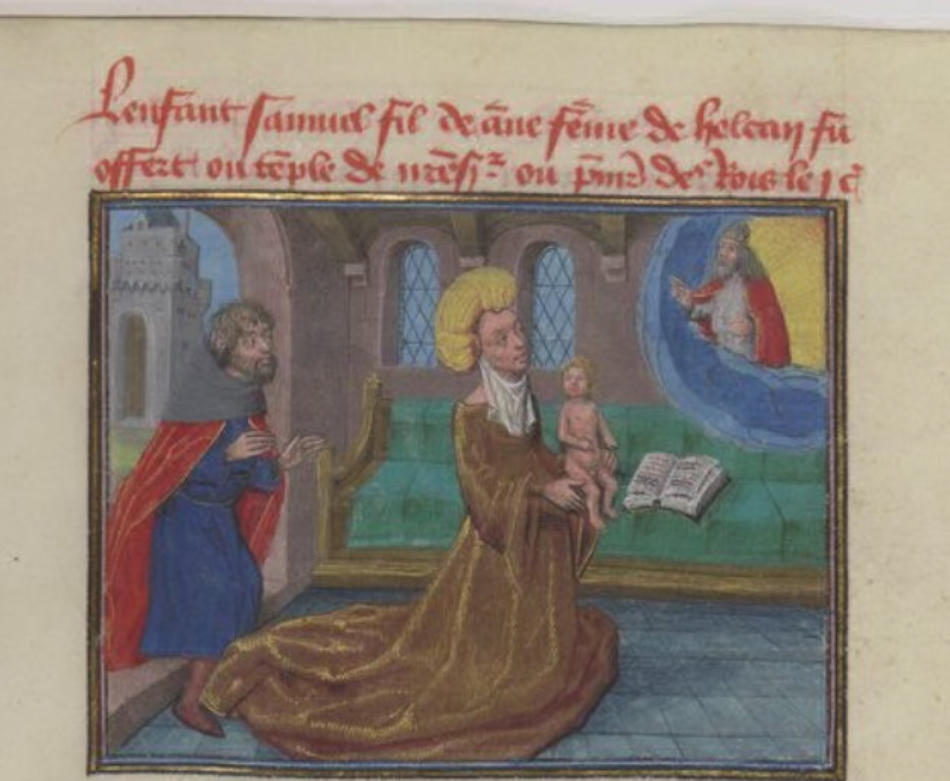 Lenfant samuel fil de āne fēme de helcan fu
offert ou tēple de nr̄e sr̄ ou p̄mr̄ des Rois le j c̄